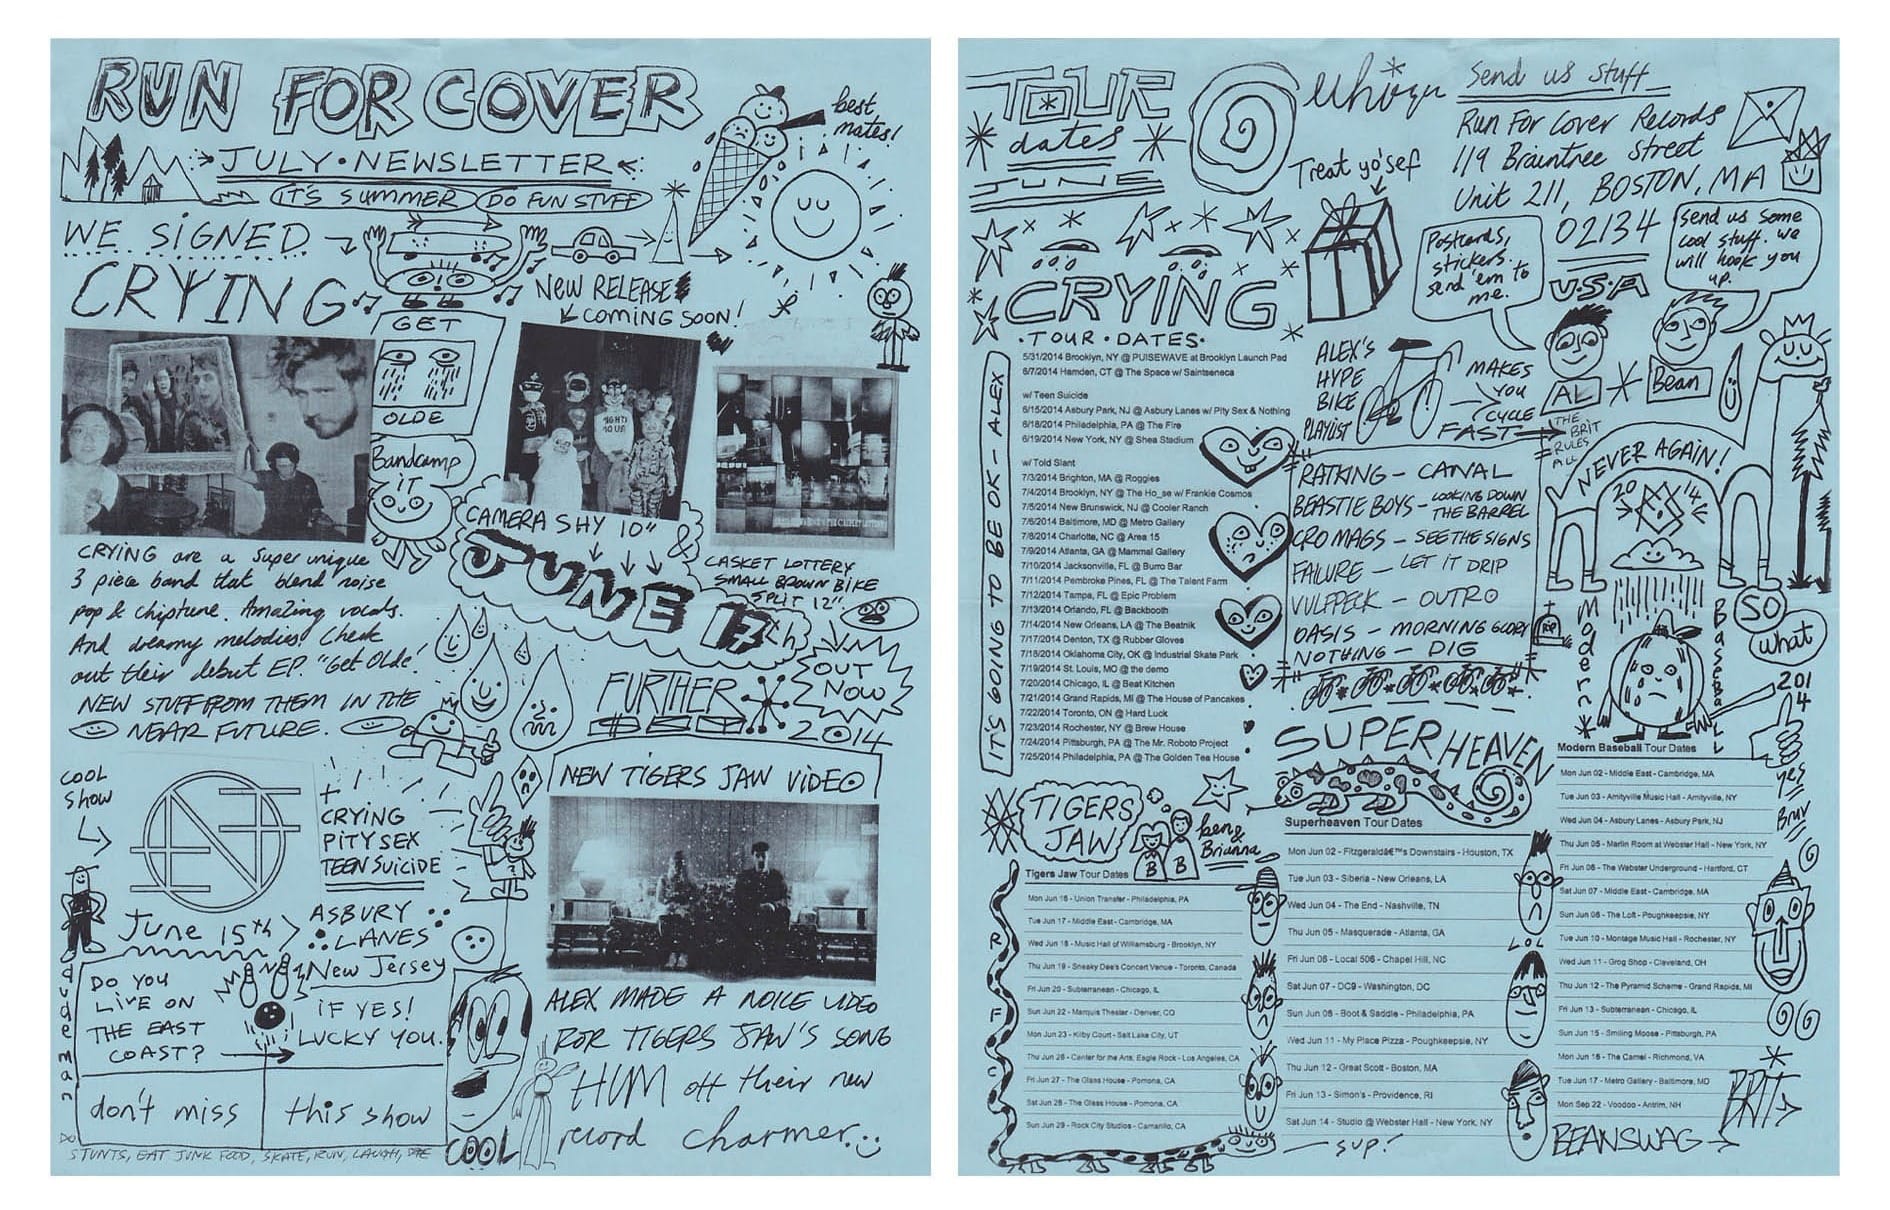 RUN FOR COVER
best mates!
JULY • NEWSLETTER
IT'S SUMMER DO FUN STUFF
WE SIGNED
CRYING
NEW RELEASE
COMING SOON!
GET
OLDE
Bandcamp
iT
CAMERA SHY 10"
&
JUNE 17th
CASKET LOTTERY
SMALL BROWN BIKE
SPLIT 12"
OUT
NOW
CRYING are a super unique
3 piece band that blend noise
pop & chiptune. Amazing vocals.
And dreamy melodies! Check
out their debut EP. "Get Olde'
NEW STUFF FROM THEM IN THE
NEAR FUTURE.
FURTHER
SKY
2014
COOL
Show
+
CRYING
PITY SEX
TEEN SUICIDE
June 15th
ASBURY
LANES
New Jersey
DO YOU
LIVE ON
THE EAST
COAST?
iF YES!
LUCKY YOU.
don't miss
this show
dudeman
DO
STUNTS, EAT JUNK FOOD, SKATE, RUN, LAUGH, DIE
COOL
NEW TIGERS JAW VIDEO
ALEX MADE A NOICE VIDEO
FOR TIGERS JAW'S SONG
HUM off their new
record charmer.
TOUR
dates
JUNE
Treat yo'sef
Send us stuff
Run For Cover Records
119 Braintree Street
Unit 211, BOSTON, MA
02134
USA
Postcards,
stickers.
send 'em to
me.
Send us some
cool stuff. we
will hook you
up.
AL
Bean
CRYING
• TOUR • DATES •
IT'S GOING TO BE OK - ALEX
5/31/2014 Brooklyn, NY @ PUISEWAVE at Brooklyn Launch Pad
6/7/2014 Hamden, CT @ The Space w/ Saintseneca
w/ Teen Suicide
6/15/2014 Asbury Park, NJ @ Asbury Lanes w/ Pity Sex & Nothing
6/18/2014 Philadelphia, PA @ The Fire
6/19/2014 New York, NY @ Shea Stadium
w/ Told Slant
7/3/2014 Brighton, MA @ Roggies
7/4/2014 Brooklyn, NY @ The Ho_se w/ Frankie Cosmos
7/5/2014 New Brunswick, NJ @ Cooler Ranch
7/6/2014 Baltimore, MD @ Metro Gallery
7/8/2014 Charlotte, NC @ Area 15
7/9/2014 Atlanta, GA @ Mammal Gallery
7/10/2014 Jacksonville, FL @ Burro Bar
7/11/2014 Pembroke Pines, FL @ The Talent Farm
7/12/2014 Tampa, FL @ Epic Problem
7/13/2014 Orlando, FL @ Backbooth
7/14/2014 New Orleans, LA @ The Beatnik
7/17/2014 Denton, TX @ Rubber Gloves
7/18/2014 Oklahoma City, OK @ Industrial Skate Park
7/19/2014 St. Louis, MO @ the demo
7/20/2014 Chicago, IL @ Beat Kitchen
7/21/2014 Grand Rapids, MI @ The House of Pancakes
7/22/2014 Toronto, ON @ Hard Luck
7/23/2014 Rochester, NY @ Brew House
7/24/2014 Pittsburgh, PA @ The Mr. Roboto Project
7/25/2014 Philadelphia, PA @ The Golden Tea House
ALEX'S
HYPE
BIKE
PLAYLIST
MAKES
YOU
CYCLE
FAST
THE
BRIT
RULES
ALL
RATKING - CANAL
BEASTIE BOYS - LOOKING DOWN
THE BARREL
CRO MAGS - SEE THE SIGNS
FAILURE - LET IT DRIP
VULFPECK - OUTRO
OASIS - MORNING GLORY
NOTHING - DIE
NEVER AGAIN!
2014
RIP
Modern
Baseball
SO
what
2014
yes
Bruv
Modern Baseball Tour Dates
Mon Jun 02 - Middle East - Cambridge, MA
Tue Jun 03 - Amityville Music Hall - Amityville, NY
Wed Jun 04 - Asbury Lanes - Asbury Park, NJ
Thu Jun 05 - Marlin Room at Webster Hall - New York, NY
Fri Jun 06 - The Webster Underground - Hartford, CT
Sat Jun 07 - Middle East - Cambridge, MA
Sun Jun 08 - The Loft - Poughkeepsie, NY
Tue Jun 10 - Montage Music Hall - Rochester, NY
Wed Jun 11 - Grog Shop - Cleveland, OH
Thu Jun 12 - The Pyramid Scheme - Grand Rapids, MI
Fri Jun 13 - Subterranean - Chicago, IL
Sun Jun 15 - Smiling Moose - Pittsburgh, PA
Mon Jun 16 - The Camel - Richmond, VA
Tue Jun 17 - Metro Gallery - Baltimore, MD
Mon Sep 22 - Voodoo - Antrim, NH
BRIT
BEANSWAG
SUPERHEAVEN
Superheaven Tour Dates
Mon Jun 02 - Fitzgeraldâ€™s Downstairs - Houston, TX
Tue Jun 03 - Siberia - New Orleans, LA
Wed Jun 04 - The End - Nashville, TN
Thu Jun 05 - Masquerade - Atlanta, GA
Fri Jun 06 - Local 506 - Chapel Hill, NC
Sat Jun 07 - DC9 - Washington, DC
Sun Jun 08 - Boot & Saddle - Philadelphia, PA
Wed Jun 11 - My Place Pizza - Poughkeepsie, NY
Thu Jun 12 - Great Scott - Boston, MA
Fri Jun 13 - Simon's - Providence, RI
Sat Jun 14 - Studio @ Webster Hall - New York, NY
LOL
sup!
TIGERS
JAW
B B
ben &
Brianna
Tigers Jaw Tour Dates
Mon Jun 16 - Union Transfer - Philadelphia, PA
Tue Jun 17 - Middle East - Cambridge, MA
Wed Jun 18 - Music Hall of Williamsburg - Brooklyn, NY
Thu Jun 19 - Sneaky Dee's Concert Venue - Toronto, Canada
Fri Jun 20 - Subterranean - Chicago, IL
Sun Jun 22 - Marquis Theater - Denver, CO
Mon Jun 23 - Kilby Court - Salt Lake City, UT
Thu Jun 26 - Center for the Arts, Eagle Rock - Los Angeles, CA
Fri Jun 27 - The Glass House - Pomona, CA
Sat Jun 28 - The Glass House - Pomona, CA
Sun Jun 29 - Rock City Studios - Camarillo, CA
R
F
C